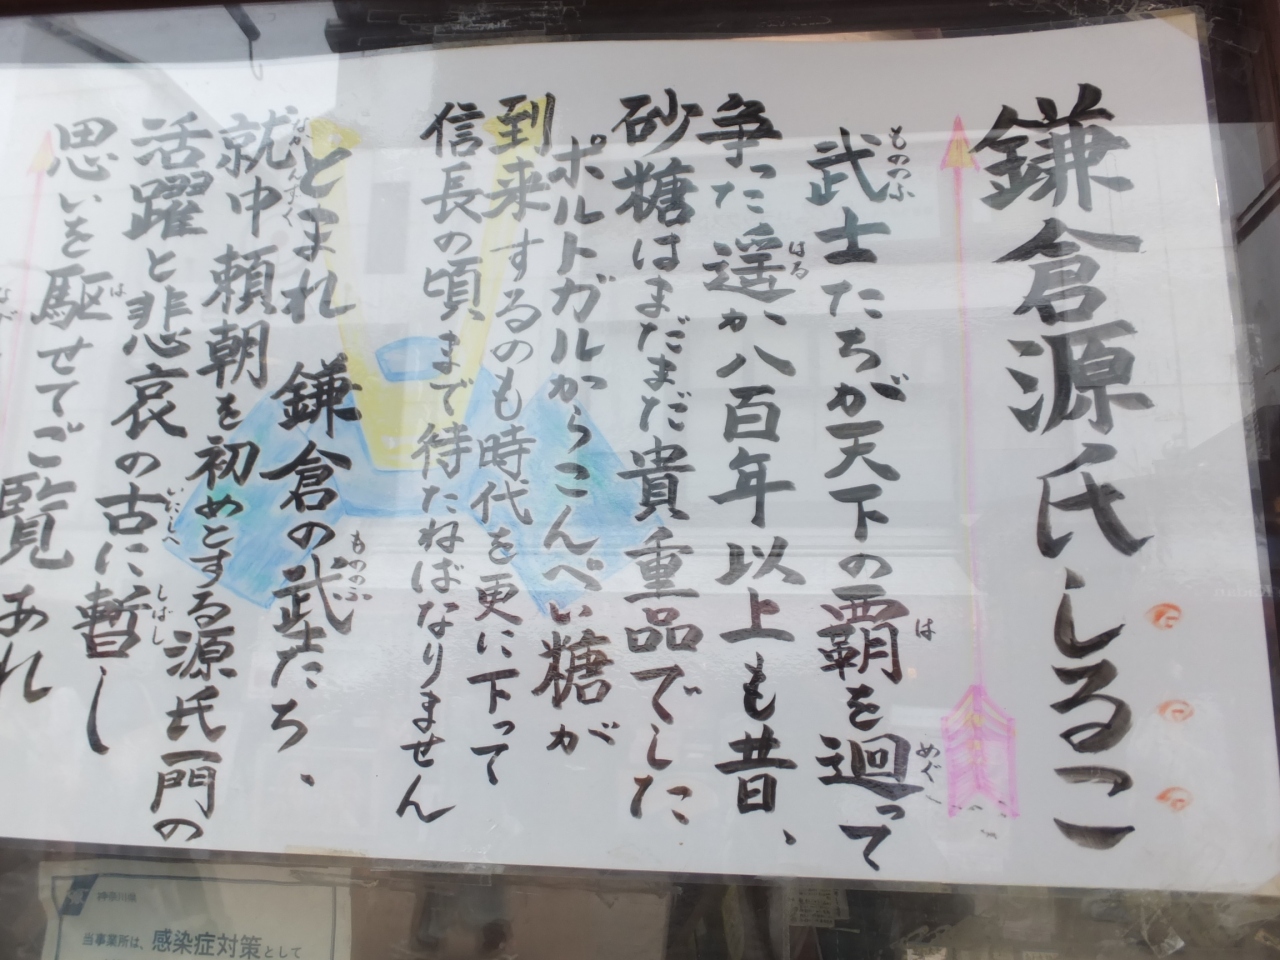 鎌倉源氏しるこ
武士たちが天下の覇を廻って
もののふ
は
めぐ
争った遥か八百年以上も昔、
はる
砂糖はまだまだ貴重品でした
ポルトガルからこんぺい糖が
到来するのも時代を更に下って
信長の頃まで待たねばなりません
とまれ 鎌倉の武士たち、
もののふ
就中頼朝を初めとする源氏一門の
なかんずく
活躍と悲哀の古に暫し
いにしへ
しばし
思いを駆せてご覧あれ
は
神奈川県
当事業所は、感染症対策として